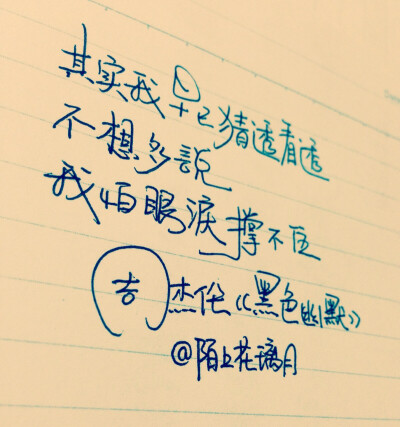 其实我早已猜透看透
不想多說
我怕眼淚撑不住
周杰伦《黑色幽默》
@陌上花璃月